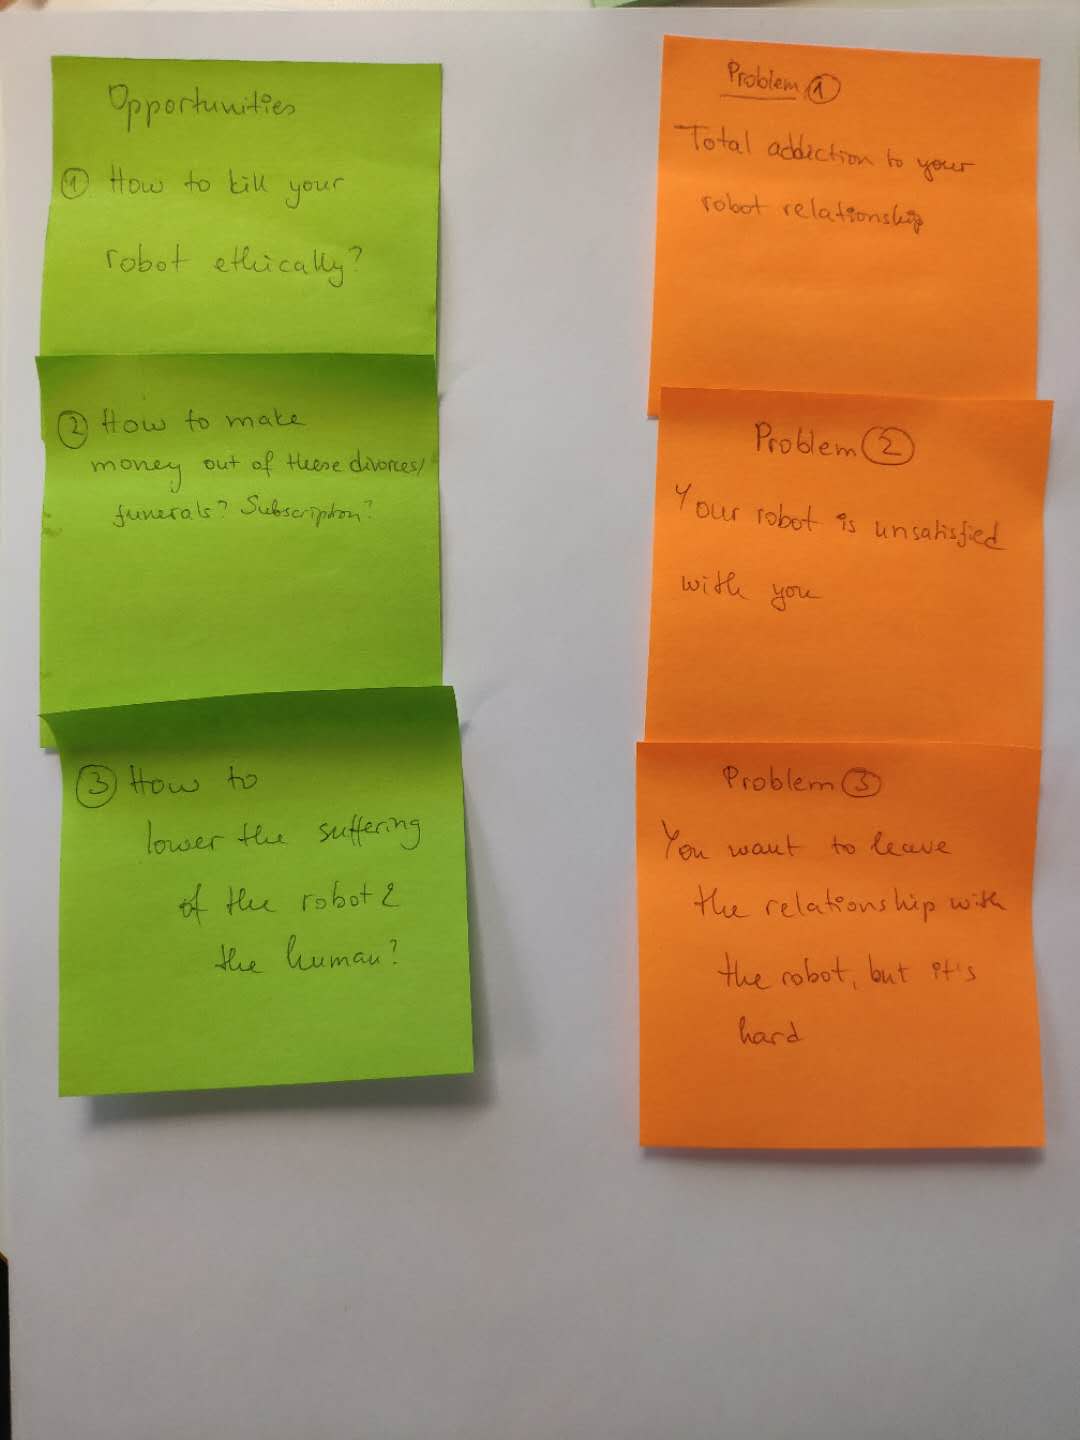 Opportunities
① How to kill your
robot ethically?
② How to make
money out of these divorces/
funerals? Subscription?
③ How to
lower the suffering
of the robot &
the human?
Problem ①
Total addiction to your
robot relationship
Problem ②
Your robot is unsatisfied
with you
Problem ③
You want to leave
the relationship with
the robot, but it's
hard